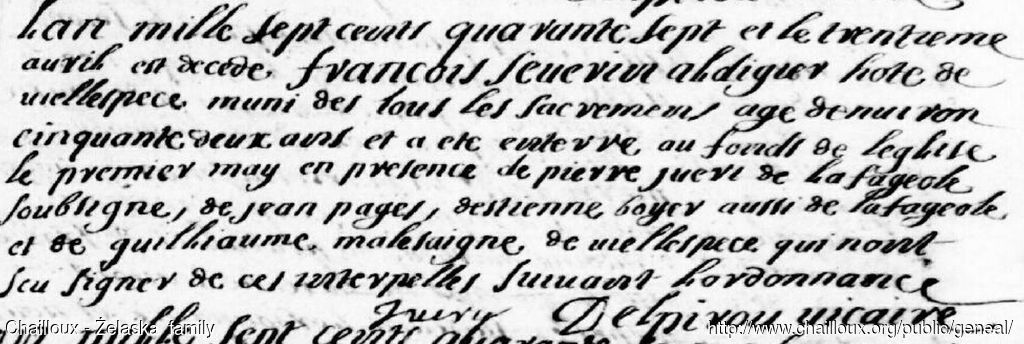 lan mille sept cents quarante sept et le trentieme
auril est decede françois seuerin aldiguier hote de
uiellespece muni des tous les sacremens age denuiron
cinquante deux ans et a ete enterre au fonds de leglise
le premier may en presence de pierre jueri de la fageole
soubsigne, de jean pages, destienne boyer aussi de lafageole
et de guilhiaume malesaigne de uiellespece qui nont
sceu signer de ces interpelles suiuant lordonnance
Juery Delpirou uicaire
mille sept cents quarante
Chailloux - Żelaska family
http://www.chailloux.org/public/geneal/